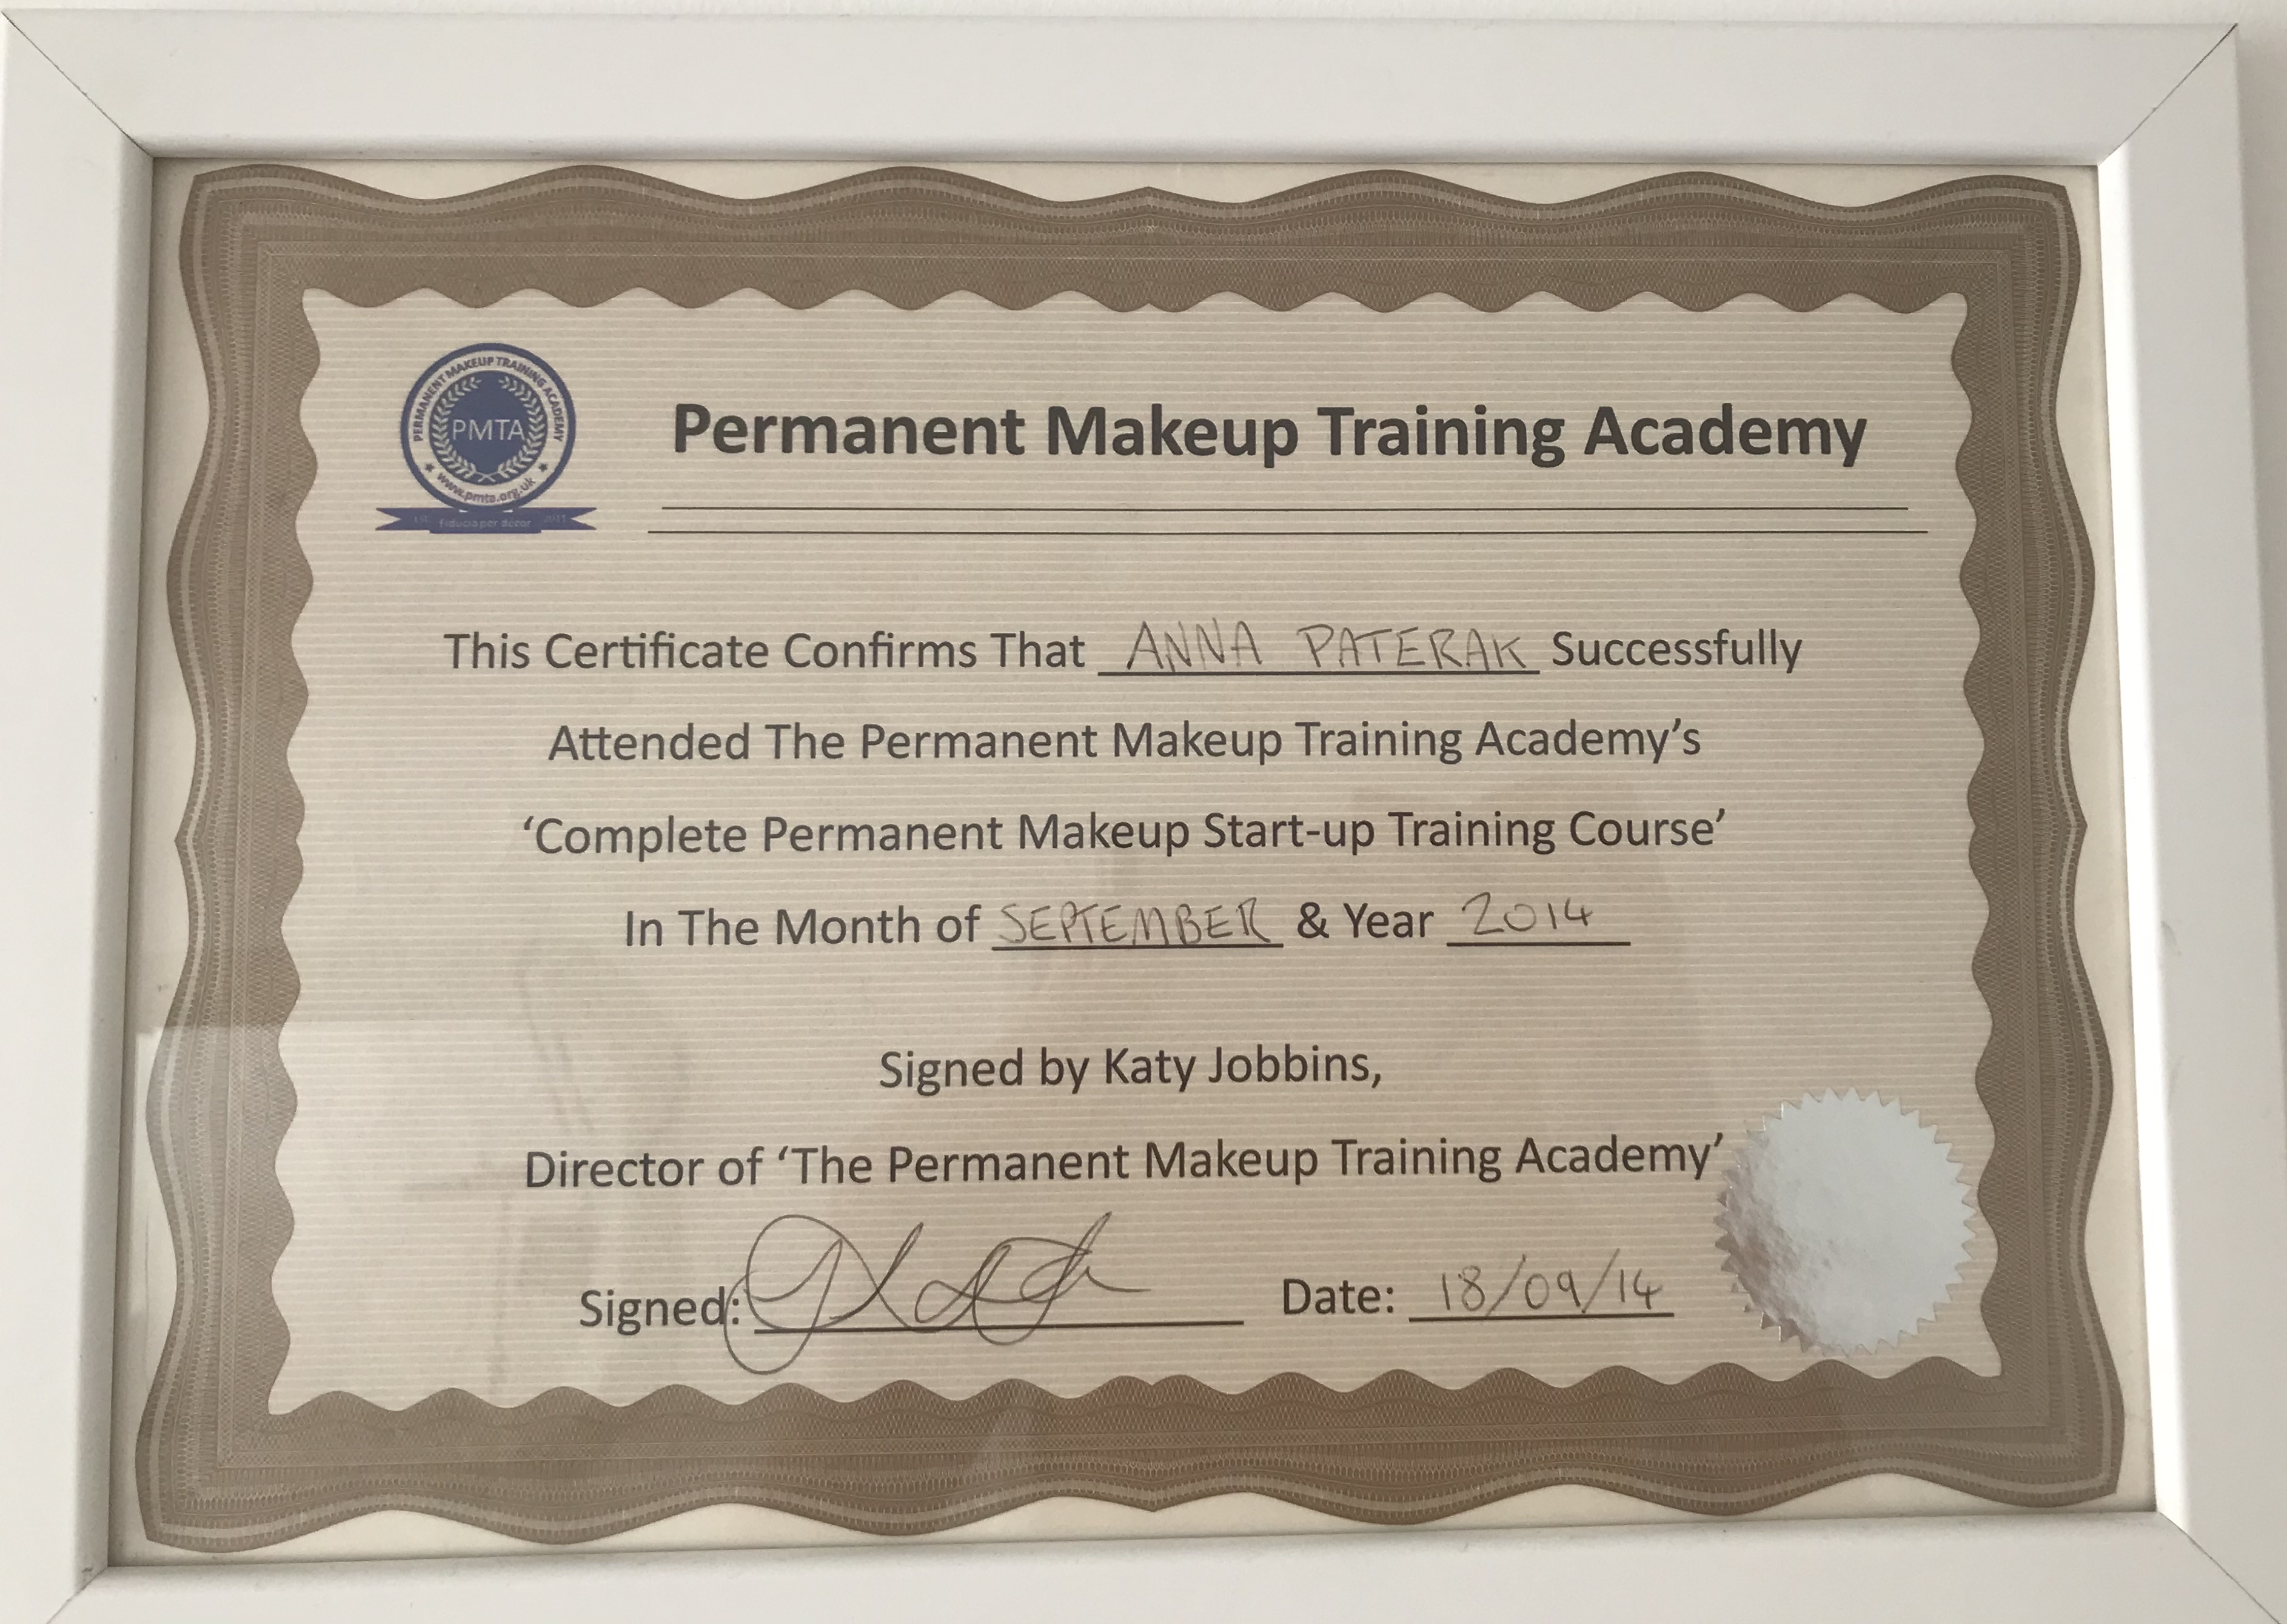 PERMANENT MAKEUP TRAINING ACADEMY
PMTA
www.pmta.org.uk
Fiducia per décor
Permanent Makeup Training Academy
This Certificate Confirms That ANNA PATERAK Successfully
Attended The Permanent Makeup Training Academy’s
‘Complete Permanent Makeup Start-up Training Course’
In The Month of SEPTEMBER & Year 2014
Signed by Katy Jobbins,
Director of ‘The Permanent Makeup Training Academy’
Signed: Date: 18/09/14